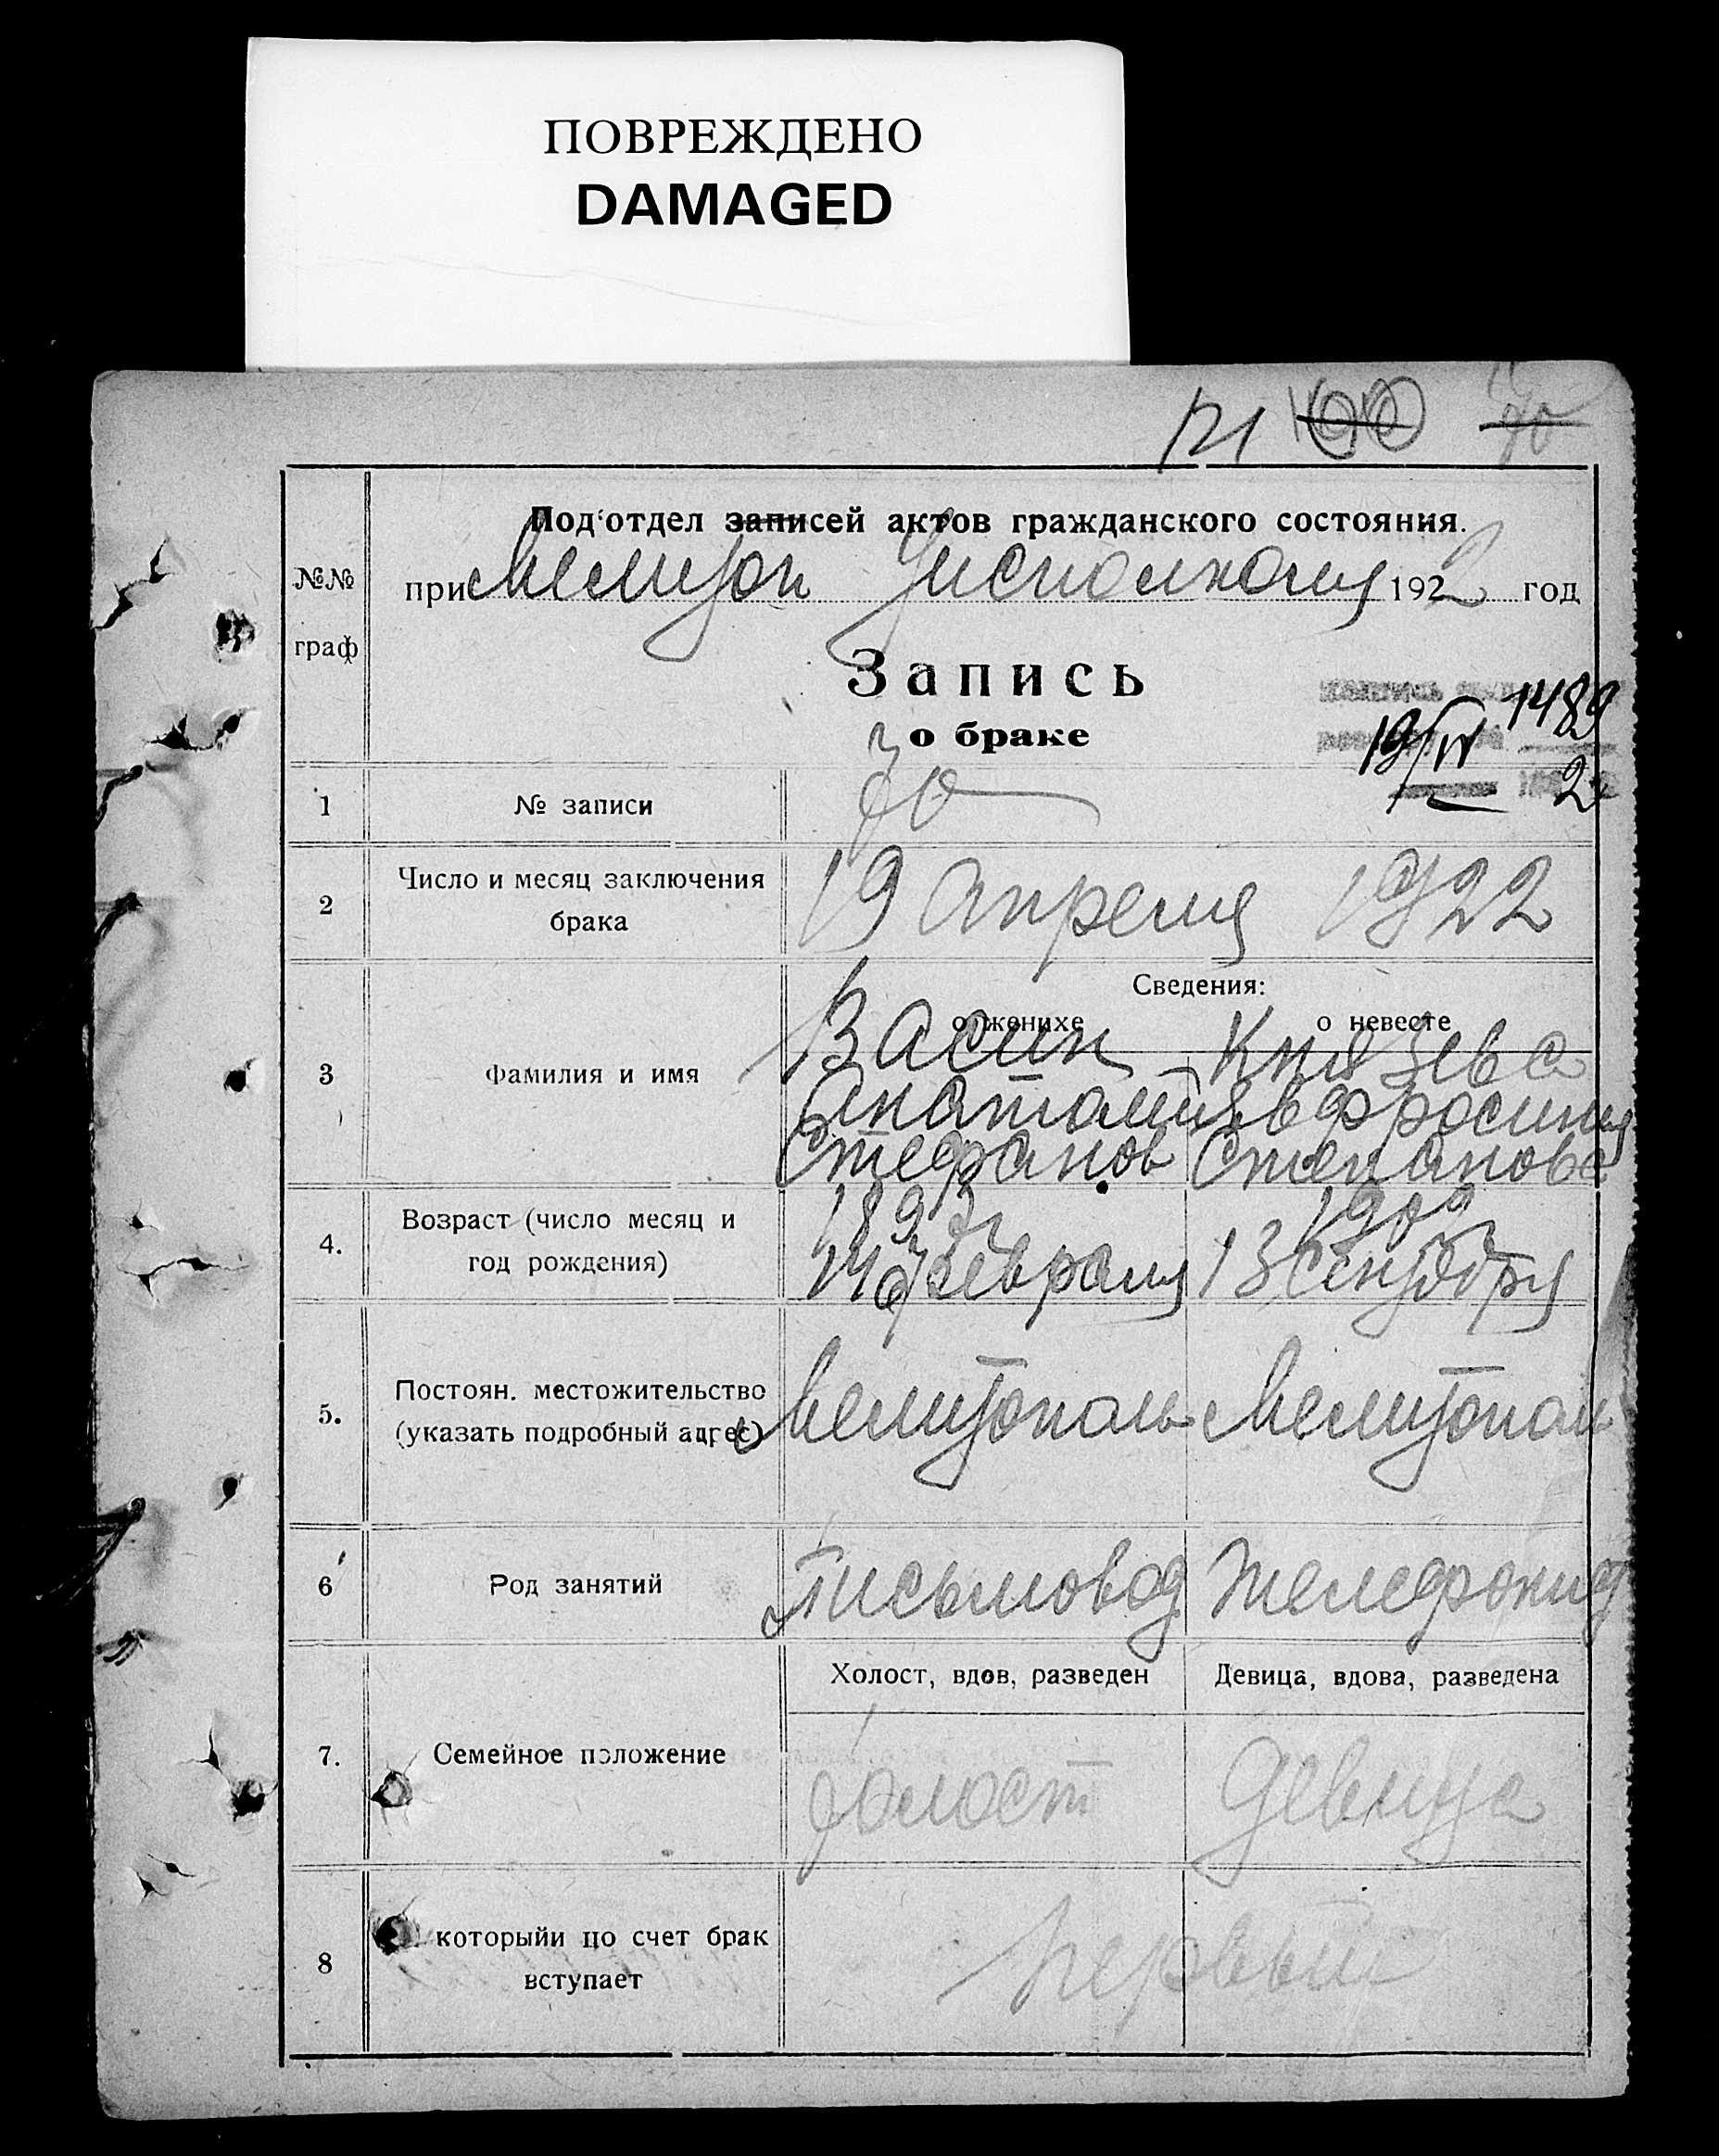 ПОВРЕЖДЕНО
DAMAGED
121
Подотдел записей актов гражданского состояния.
при Мелитоп Уисполкому 1922 год
№№
граф
Запись
о браке
1489
19/IV
2
1 № записи 70
2 Число и месяц заключения
брака
19 апреля 1922
Сведения:
о женихе о невесте
3 Фамилия и имя
Васин Князева
Анатолий Евфросиния
Стефанов Степанова
4. Возраст (число месяц и
год рождения)
14 февраля 13 Сентября
5. Постоян. местожительство
(указать подробный адрес)
Мелитополь Мелитопол
6 Род занятий
Письмовод Телефонист
Холост, вдов, разведен Девица, вдова, разведена
7. Семейное положение
Холост Девица
8 которыйи по счет брак
вступает
первый